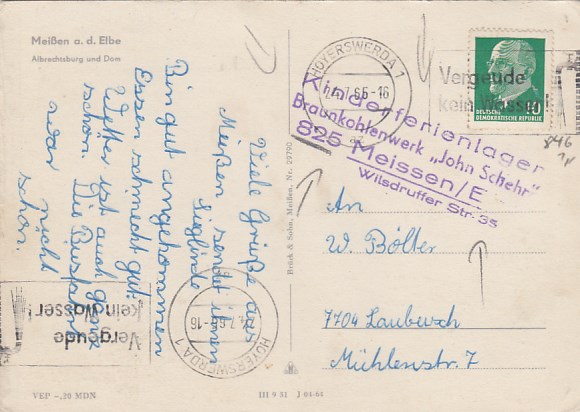 Meißen a. d. Elbe
Albrechtsburg und Dom
Viele Grüße aus
Meißen sendet ihnen
Sieglinde
Bin gut angekommen
Essen schmeckt gut.
Wetter ist auch ganz
schön. Die Busfahrt
war nicht
schön.
Brück & Sohn, Meißen, Nr. 29790
HOYERSWERDA 1
7.65-16
Vergeude
kein Wasser!
10
DEUTSCHE
DEMOKRATISCHE REPUBLIK
Kinderferienlager
Braunkohlenwerk „John Schehr"
825 Meissen/E
Wilsdruffer Str. 35
846
An
W. Bölter
7704 Laubusch
Mühlenstr. 7
Vergeude
kein Wasser!
HOYERSWERDA 1
7.65-16
VEP -,20 MDN
III 9 31 J